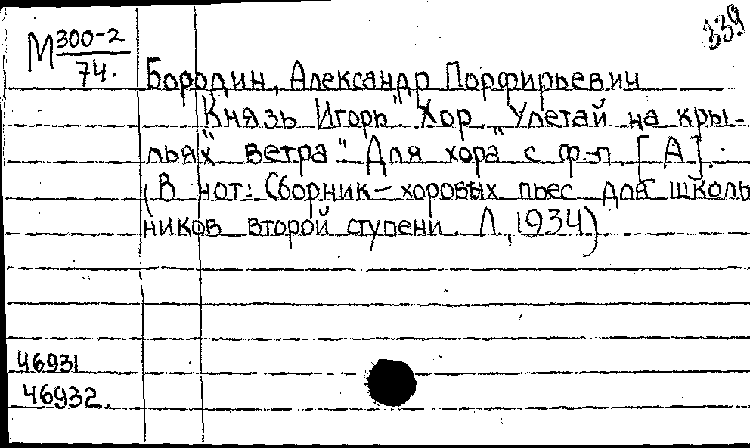 339
М 300-2
74.
Бородин, Александр Порфирьевич
"Князь Игорь" Хор "Улетай на кры-
льях ветра". Для хора с ф-п. [А].
(В нот: Сборник - хоровых пьес для школь
ников второй ступени. Л., 1934).
46931
46932.